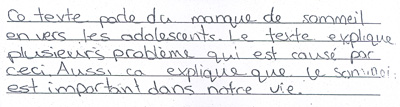 Ce texte parle du manque de sommeil
envers les adolescents. Le texte explique
plusieurs problème qui est causé par
ceci. Aussi ca explique que le sommeil
est important dans notre vie.